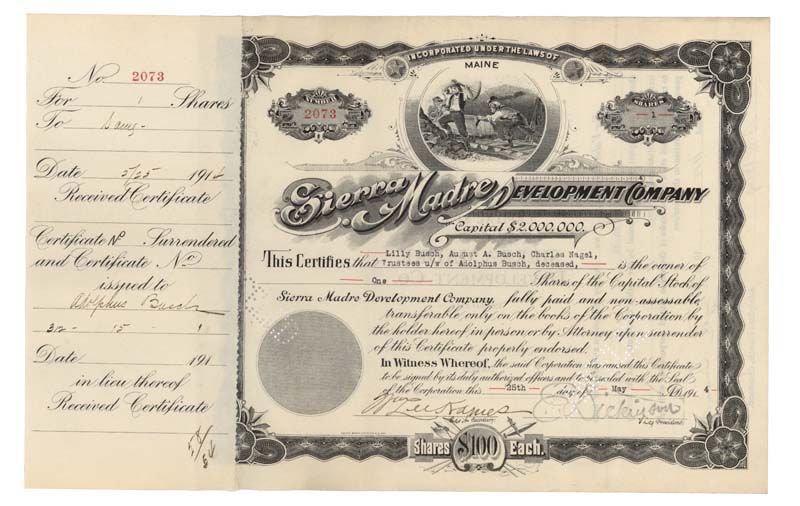 No. 2073
For 1 Shares
To Same-
Date 5/25 1914
Received Certificate
Certificate No Surrendered
and Certificate No
issued to
Adolphus Busch
312- 15 1
Date 191
in lieu thereof
Received Certificate
INCORPORATED UNDER THE LAWS OF
MAINE
NUMBER
2073
SHARES
-1-
Sierra Madre DEVELOPMENT COMPANY
Capital $2,000,000.
This Certifies that Lilly Busch, August A. Busch, Charles Nagel,
Trustees u/w of Adolphus Busch, deceased, is the owner of
One Shares of the Capital Stock of
Sierra Madre Development Company, fully paid and non-assessable,
transferable only on the books of the Corporation by
the holder hereof in person or by Attorney upon surrender
of this Certificate properly endorsed.
In Witness Whereof, the said Corporation has caused this Certificate
to be signed by its duly authorized officers and to be sealed with the Seal
of the Corporation this 25th day of May A.D. 1914
Dickinson
President
Shares $100 Each.